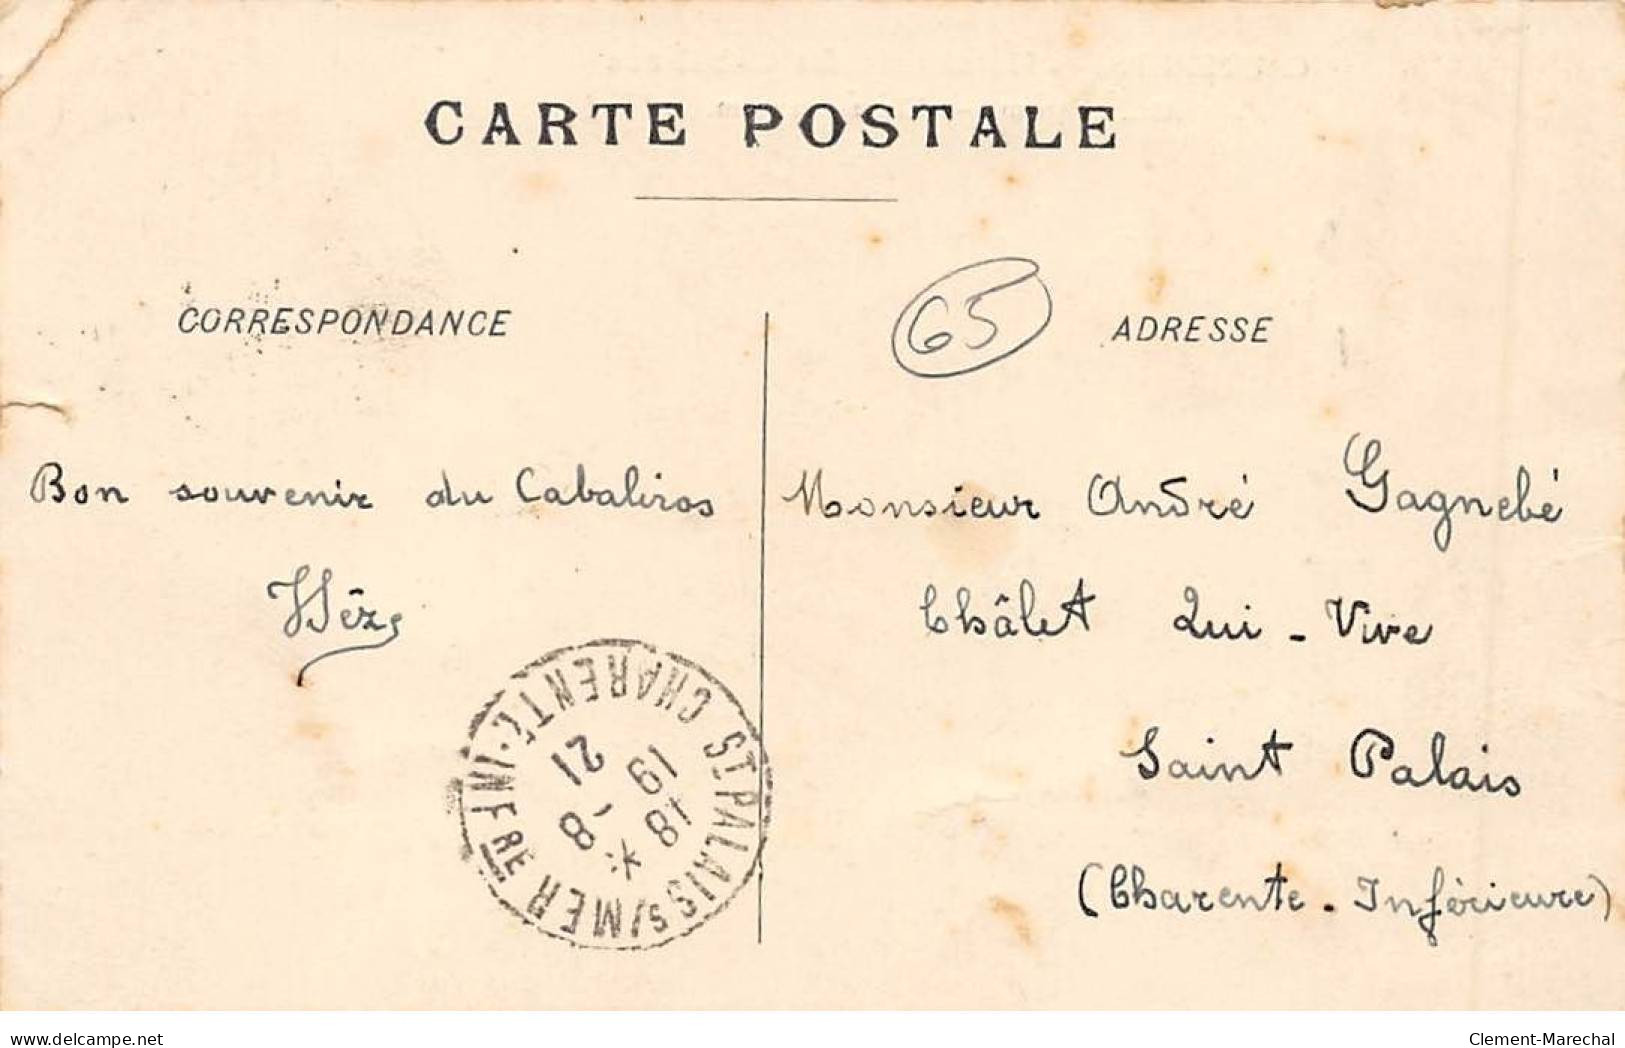 CARTE POSTALE
CORRESPONDANCE
65
ADRESSE
Bon souvenir du Cabaliros
Monsieur André Gagnebé
Châlet Qui-Vive
Saint Palais
(Charente-Inférieure)
ST PALAIS S/MER
CHARENTE-INFRE
18
19
*
8-
21
delcampe.net
Clement-Marechal